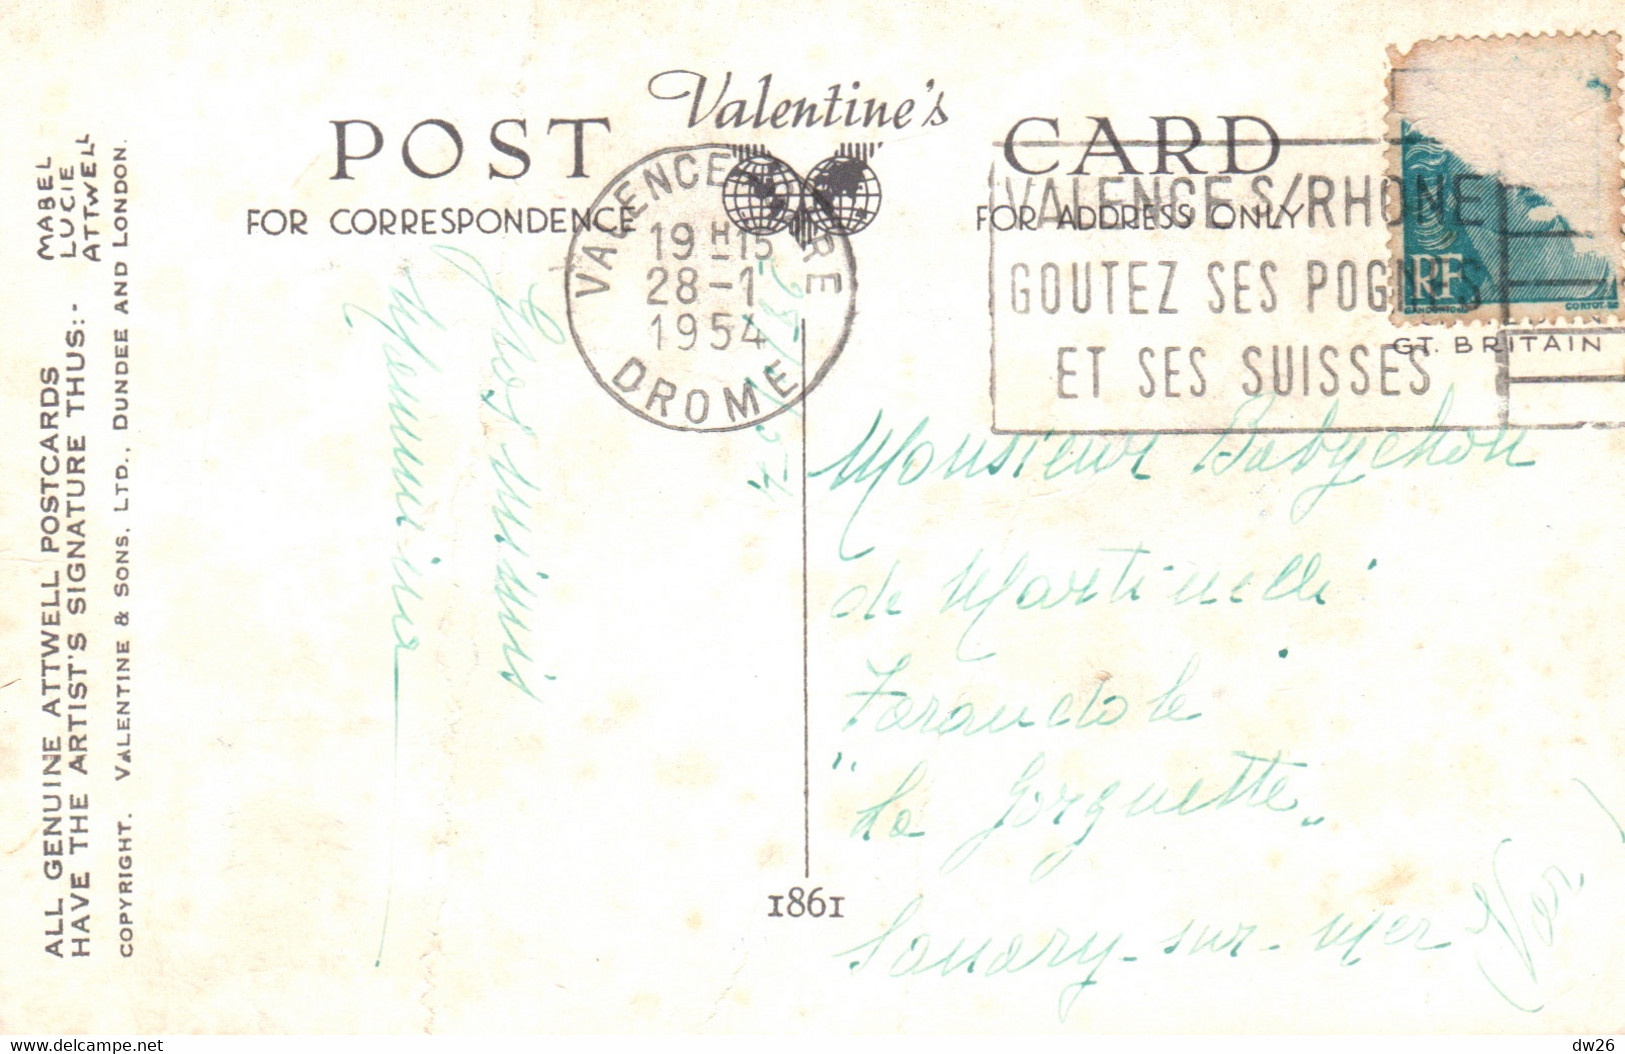 Valentine's
POST CARD
FOR CORRESPONDENCE
FOR ADDRESS ONLY
ALL GENUINE ATTWELL POSTCARDS
HAVE THE ARTIST'S SIGNATURE THUS:-
MABEL
LUCIE
ATTWELL
COPYRIGHT. VALENTINE & SONS, LTD., DUNDEE AND LONDON.
VALENCE GARE
19H15
28-1
1954
DROME
VALENCE S/RHONE
GOUTEZ SES POGNES
ET SES SUISSES
RF
GANDON
CORTOT
GT. BRITAIN
28-1-54
Gros mimis
Mounine
Monsieur Babychou
de Martinelli
Farandole
"La Gorguette"
Sanary-sur-Mer (Var)
1861
Delcampe.net
dw26